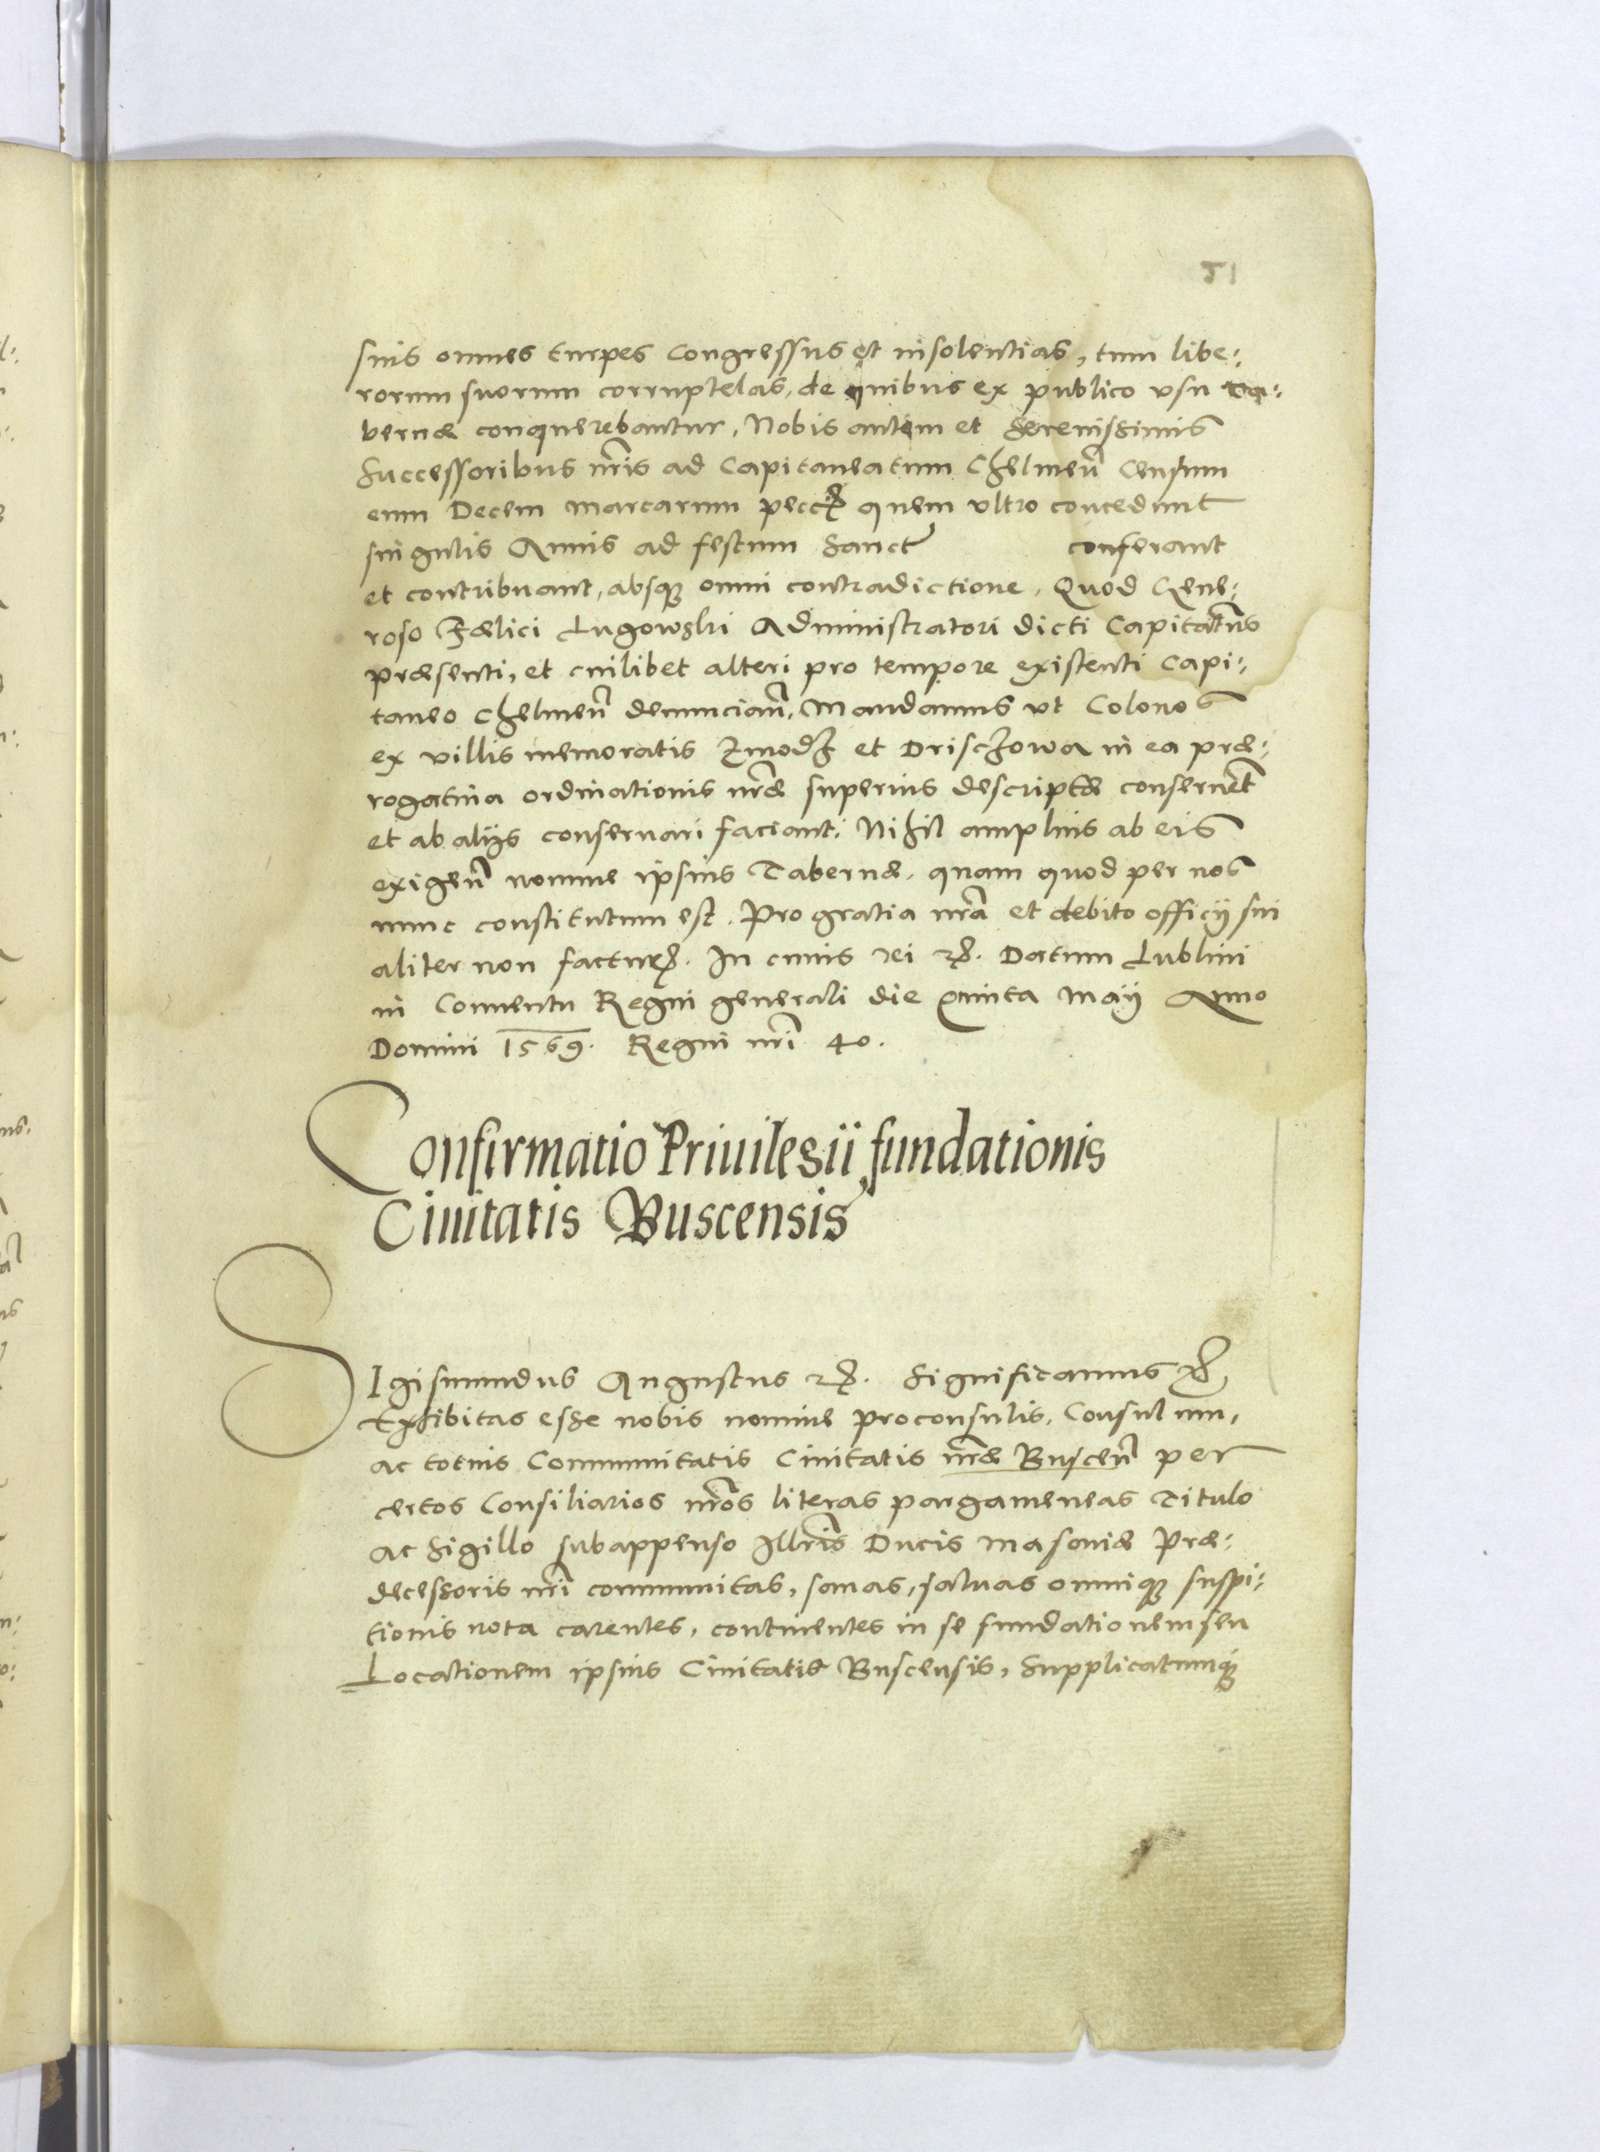 51
suis omnes turpes congressus et insolentias, tum libe:
rorum suorum corruptelas, de quibus ex publico usu ta:
bernæ conquerebantur. Nobis autem et Serenissimis
Successoribus nris ad Capitaneatum Chelmen̄ Censum
eum Decem marcarum quem ultro concedunt
singulis Annis ad festum Sanct conferant
et contribuant, absq omni contradictione. Quod Gene:
roso Fælici Lugowski Administratori dicti Capitatus
præsenti, et cuilibet alteri pro tempore existenti Capi:
taneo Chelmen̄ denuncian̄. Mandamus ut Colonos
ex villis memoratis Zmodz et Drisczowa in ea præ:
rogatiua ordinationis nræ superius descriptæ conseruet
et ab alijs conseruari faciant. Nihil amplius ab eis
exigen̄ nomine ipsius Tabernæ, quam quod per nos
nunc constitutum est. Pro gratia nrā et debito officij sui
aliter non factur. In cuius rei etc. Datum Lublini
in Conuentu Regni generali die quinta Maij Anno
Domini 1569. Regni nri 40.
Confirmatio Priuilegii fundationis
Ciuitatis Buscensis
Sigismundus Augustus etc. Significamus etc.
Exhibitas esse nobis nomine proconsulis, Consulum,
ac totius Communitatis Ciuitatis nræ Buscen̄ per
certos Consiliarios nros literas pargameneas Titulo
ac Sigillo subappenso Illris Ducis Masouiæ Præ:
decessoris nri communitas, sanas, saluas omniq suspi:
tionis nota carentes, continentes in se fundationem seu
Locationem ipsius Ciuitatis Buscensis, Supplicatumq